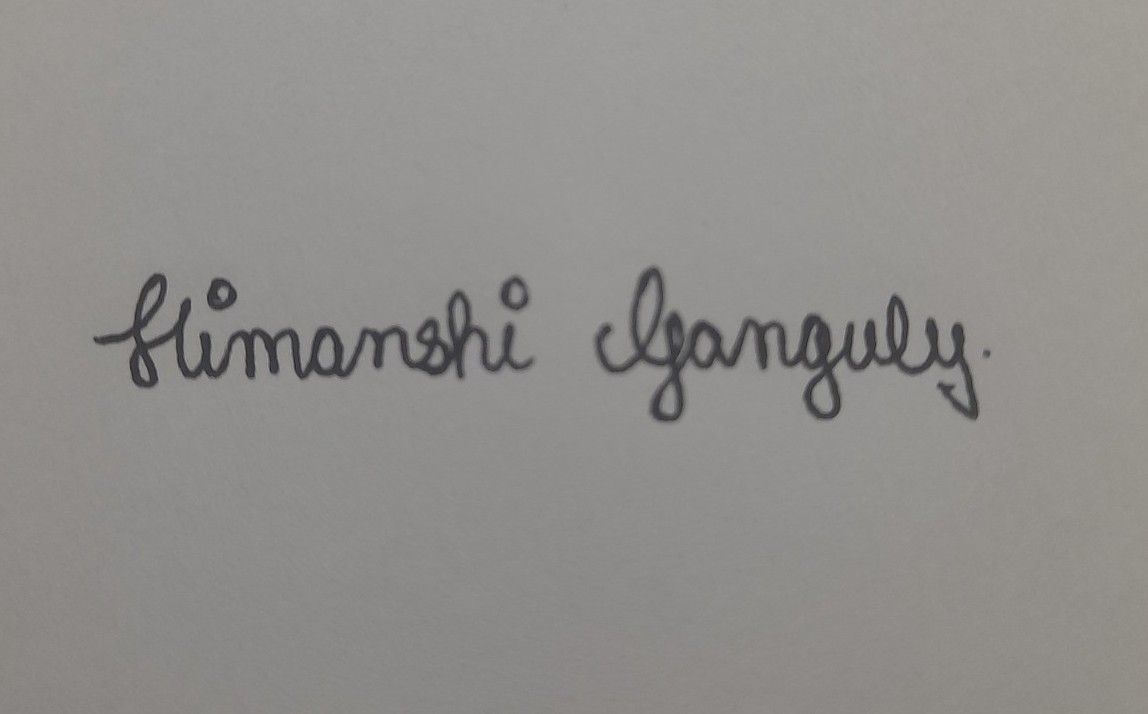 Himanshi Ganguly.